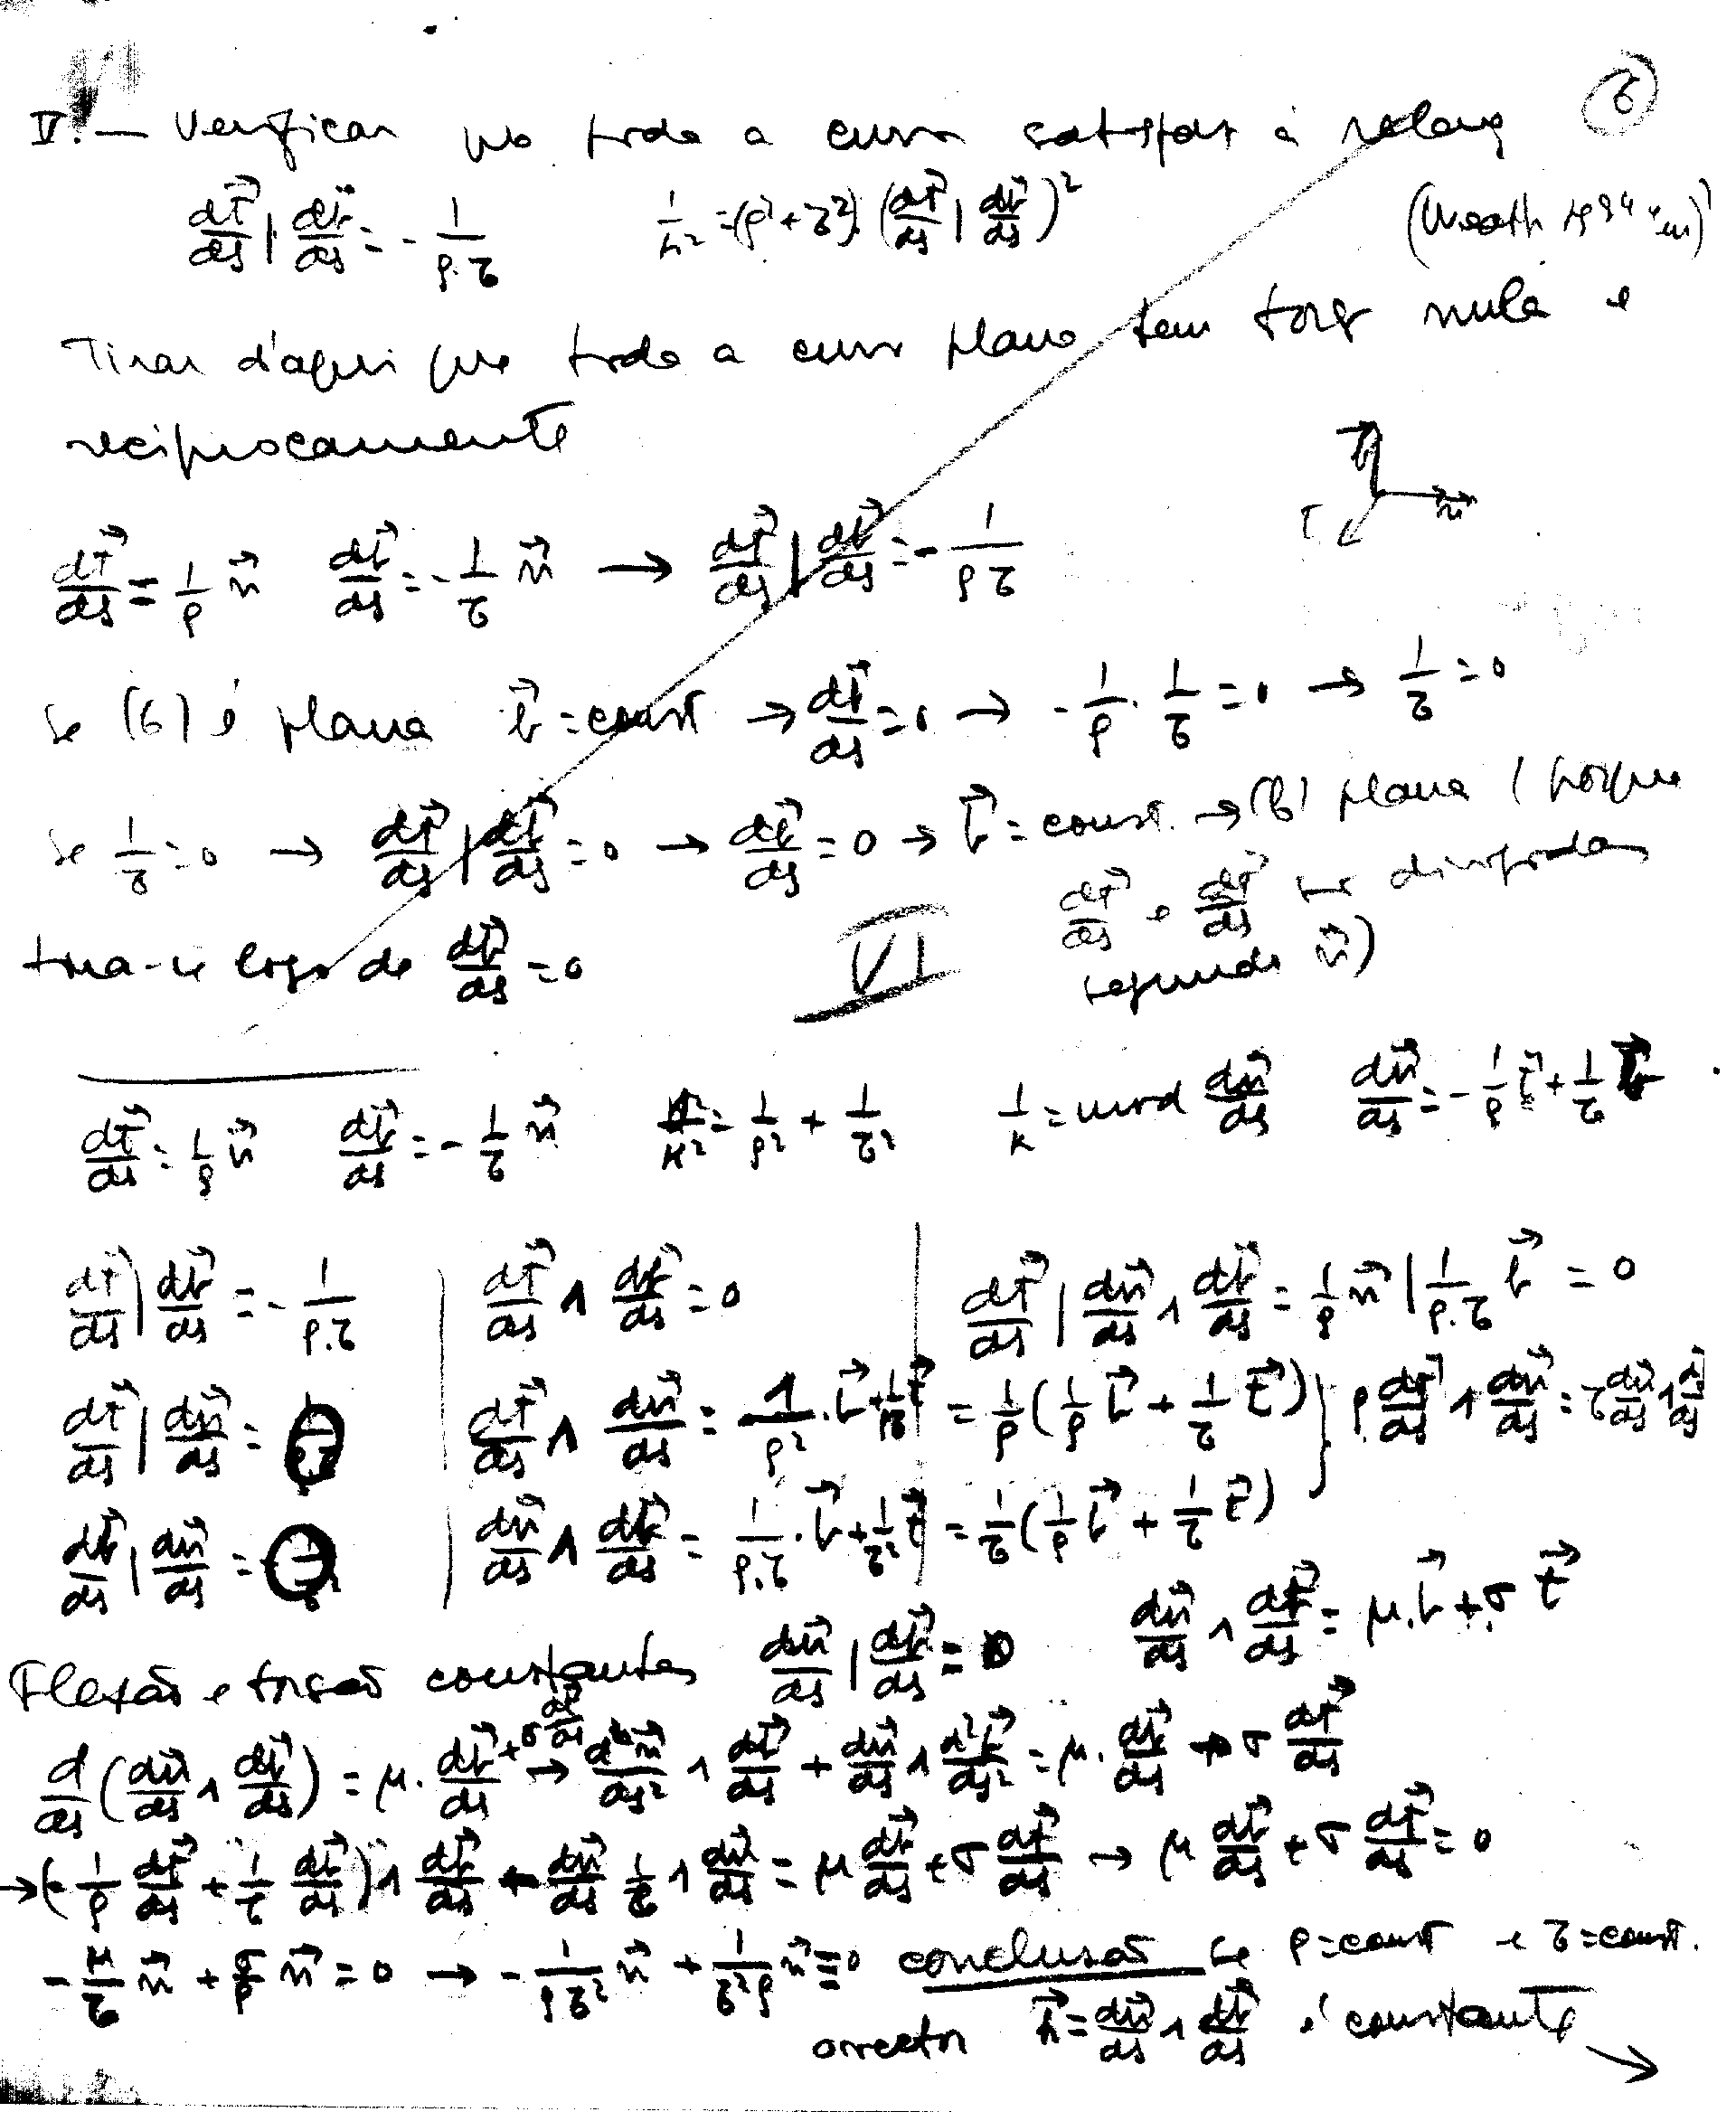 V. — Verificar que toda a curva satisfaz à relação (6)
dt⃗/ds | db⃗/ds = - 1/ρ.τ   1/k² = (ρ²+τ²).(dt⃗/ds | db⃗/ds)²
Tirar d'aqui que toda a curva plana tem torção nula e
reciprocamente
dt⃗/ds = 1/ρ n⃗   db⃗/ds = - 1/τ n⃗ → dt⃗/ds | db⃗/ds = - 1/ρτ
Se (6) é plana b⃗ = const → db⃗/ds = 0 → - 1/ρ . 1/τ = 0 → 1/τ = 0
Se 1/τ = 0 → dt⃗/ds | db⃗/ds = 0 → db⃗/ds = 0 → b⃗ = const. → (6) plana (porque
dt⃗/ds e db⃗/ds são dirigidas
segundo n⃗)
tira-se logo de db⃗/ds = 0
VI
dt⃗/ds = 1/ρ n⃗   db⃗/ds = - 1/τ n⃗   1/k² = 1/ρ² + 1/τ²   1/k = mod dn⃗/ds   dn⃗/ds = - 1/ρ t⃗ + 1/τ b⃗
dt⃗/ds | db⃗/ds = - 1/ρ.τ   dt⃗/ds ∧ db⃗/ds = 0   dt⃗/ds | dn⃗/ds ∧ db⃗/ds = 1/ρ n⃗ | 1/ρ.τ b⃗ = 0
dt⃗/ds | dn⃗/ds = 0   dt⃗/ds ∧ dn⃗/ds = 1/ρ² . b⃗ + 1/ρτ t⃗ = 1/ρ (1/ρ b⃗ + 1/τ t⃗) } ρ dt⃗/ds ∧ dn⃗/ds = τ dn⃗/ds ∧ db⃗/ds
db⃗/ds | dn⃗/ds = 0   dn⃗/ds ∧ db⃗/ds = 1/ρ.τ . b⃗ + 1/τ² t⃗ = 1/τ (1/ρ b⃗ + 1/τ t⃗)
Flexão e torsão constantes   dn⃗/ds | db⃗/ds = 0   dn⃗/ds ∧ db⃗/ds = μ.b⃗ + σ t⃗
d/ds (dn⃗/ds ∧ db⃗/ds) = μ . db⃗/ds + σ dt⃗/ds → d²n⃗/ds² ∧ db⃗/ds + dn⃗/ds ∧ d²b⃗/ds² = μ . db⃗/ds + σ dt⃗/ds
→ (- 1/ρ dt⃗/ds + 1/τ db⃗/ds) ∧ db⃗/ds - dn⃗/ds 1/τ ∧ dn⃗/ds = μ db⃗/ds + σ dt⃗/ds → μ db⃗/ds + σ dt⃗/ds = 0
- μ/τ n⃗ + σ/ρ n⃗ = 0 → - 1/ρτ² n⃗ + 1/τ²ρ n⃗ ≡ 0 conclusão se ρ = const e τ = const.
o vector h⃗ = dn⃗/ds ∧ db⃗/ds é constante →